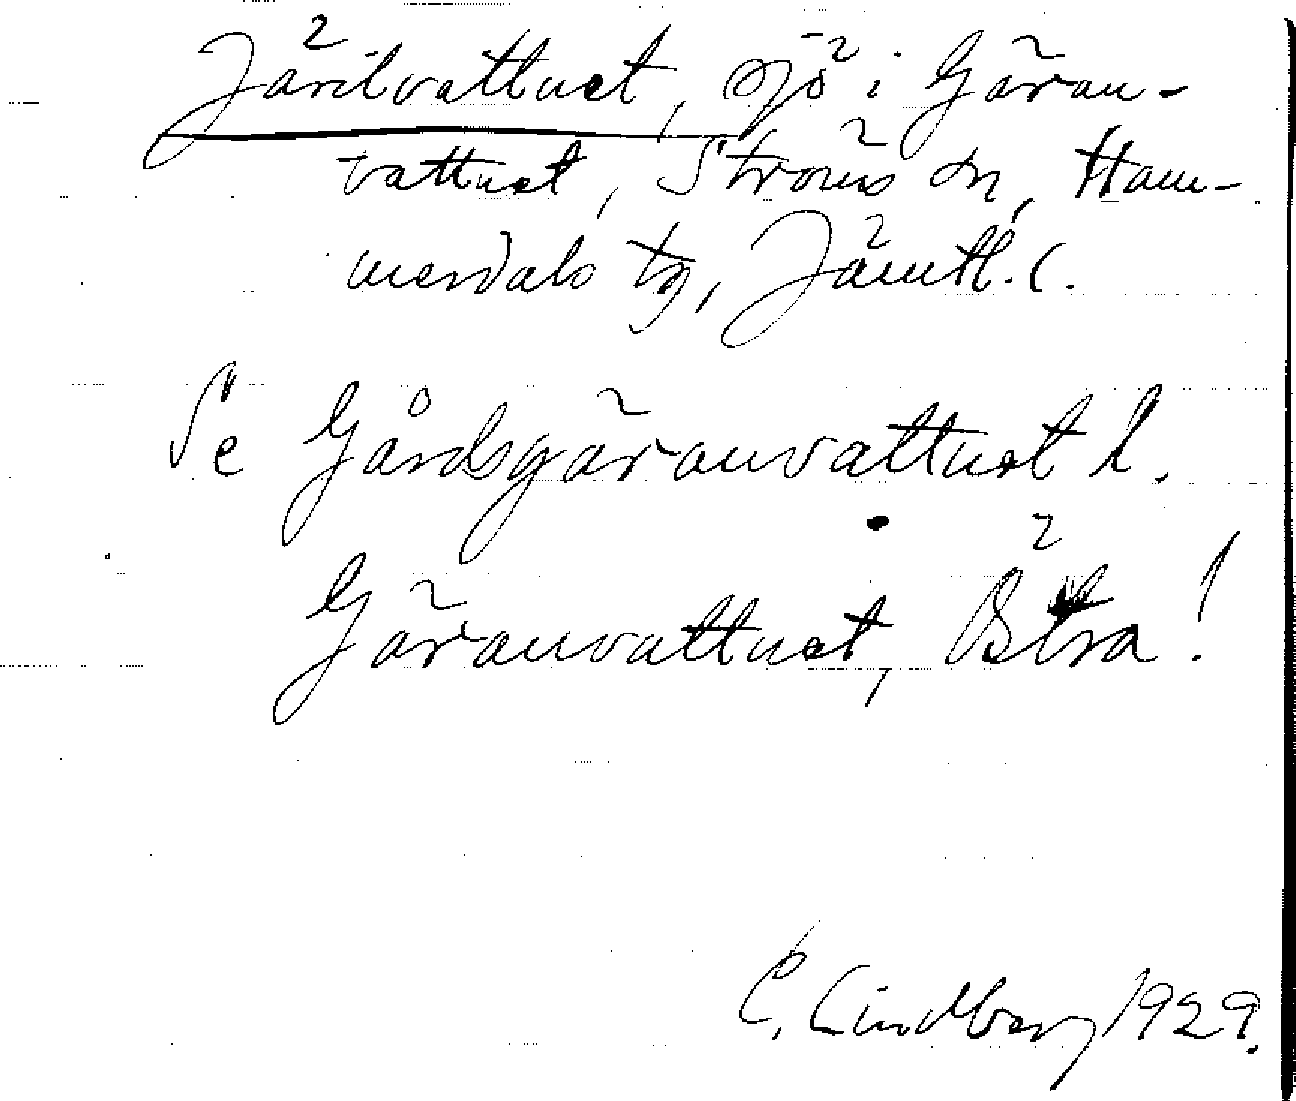 Järilvattnet, sjö i Gäran-
vattnet, Ströms sn, Ham-
merdals tg, Jämtl. l.
Se Gårdsgäranvattnet l.
Gäranvattnet, Östra!
C. Lindberg 1929.